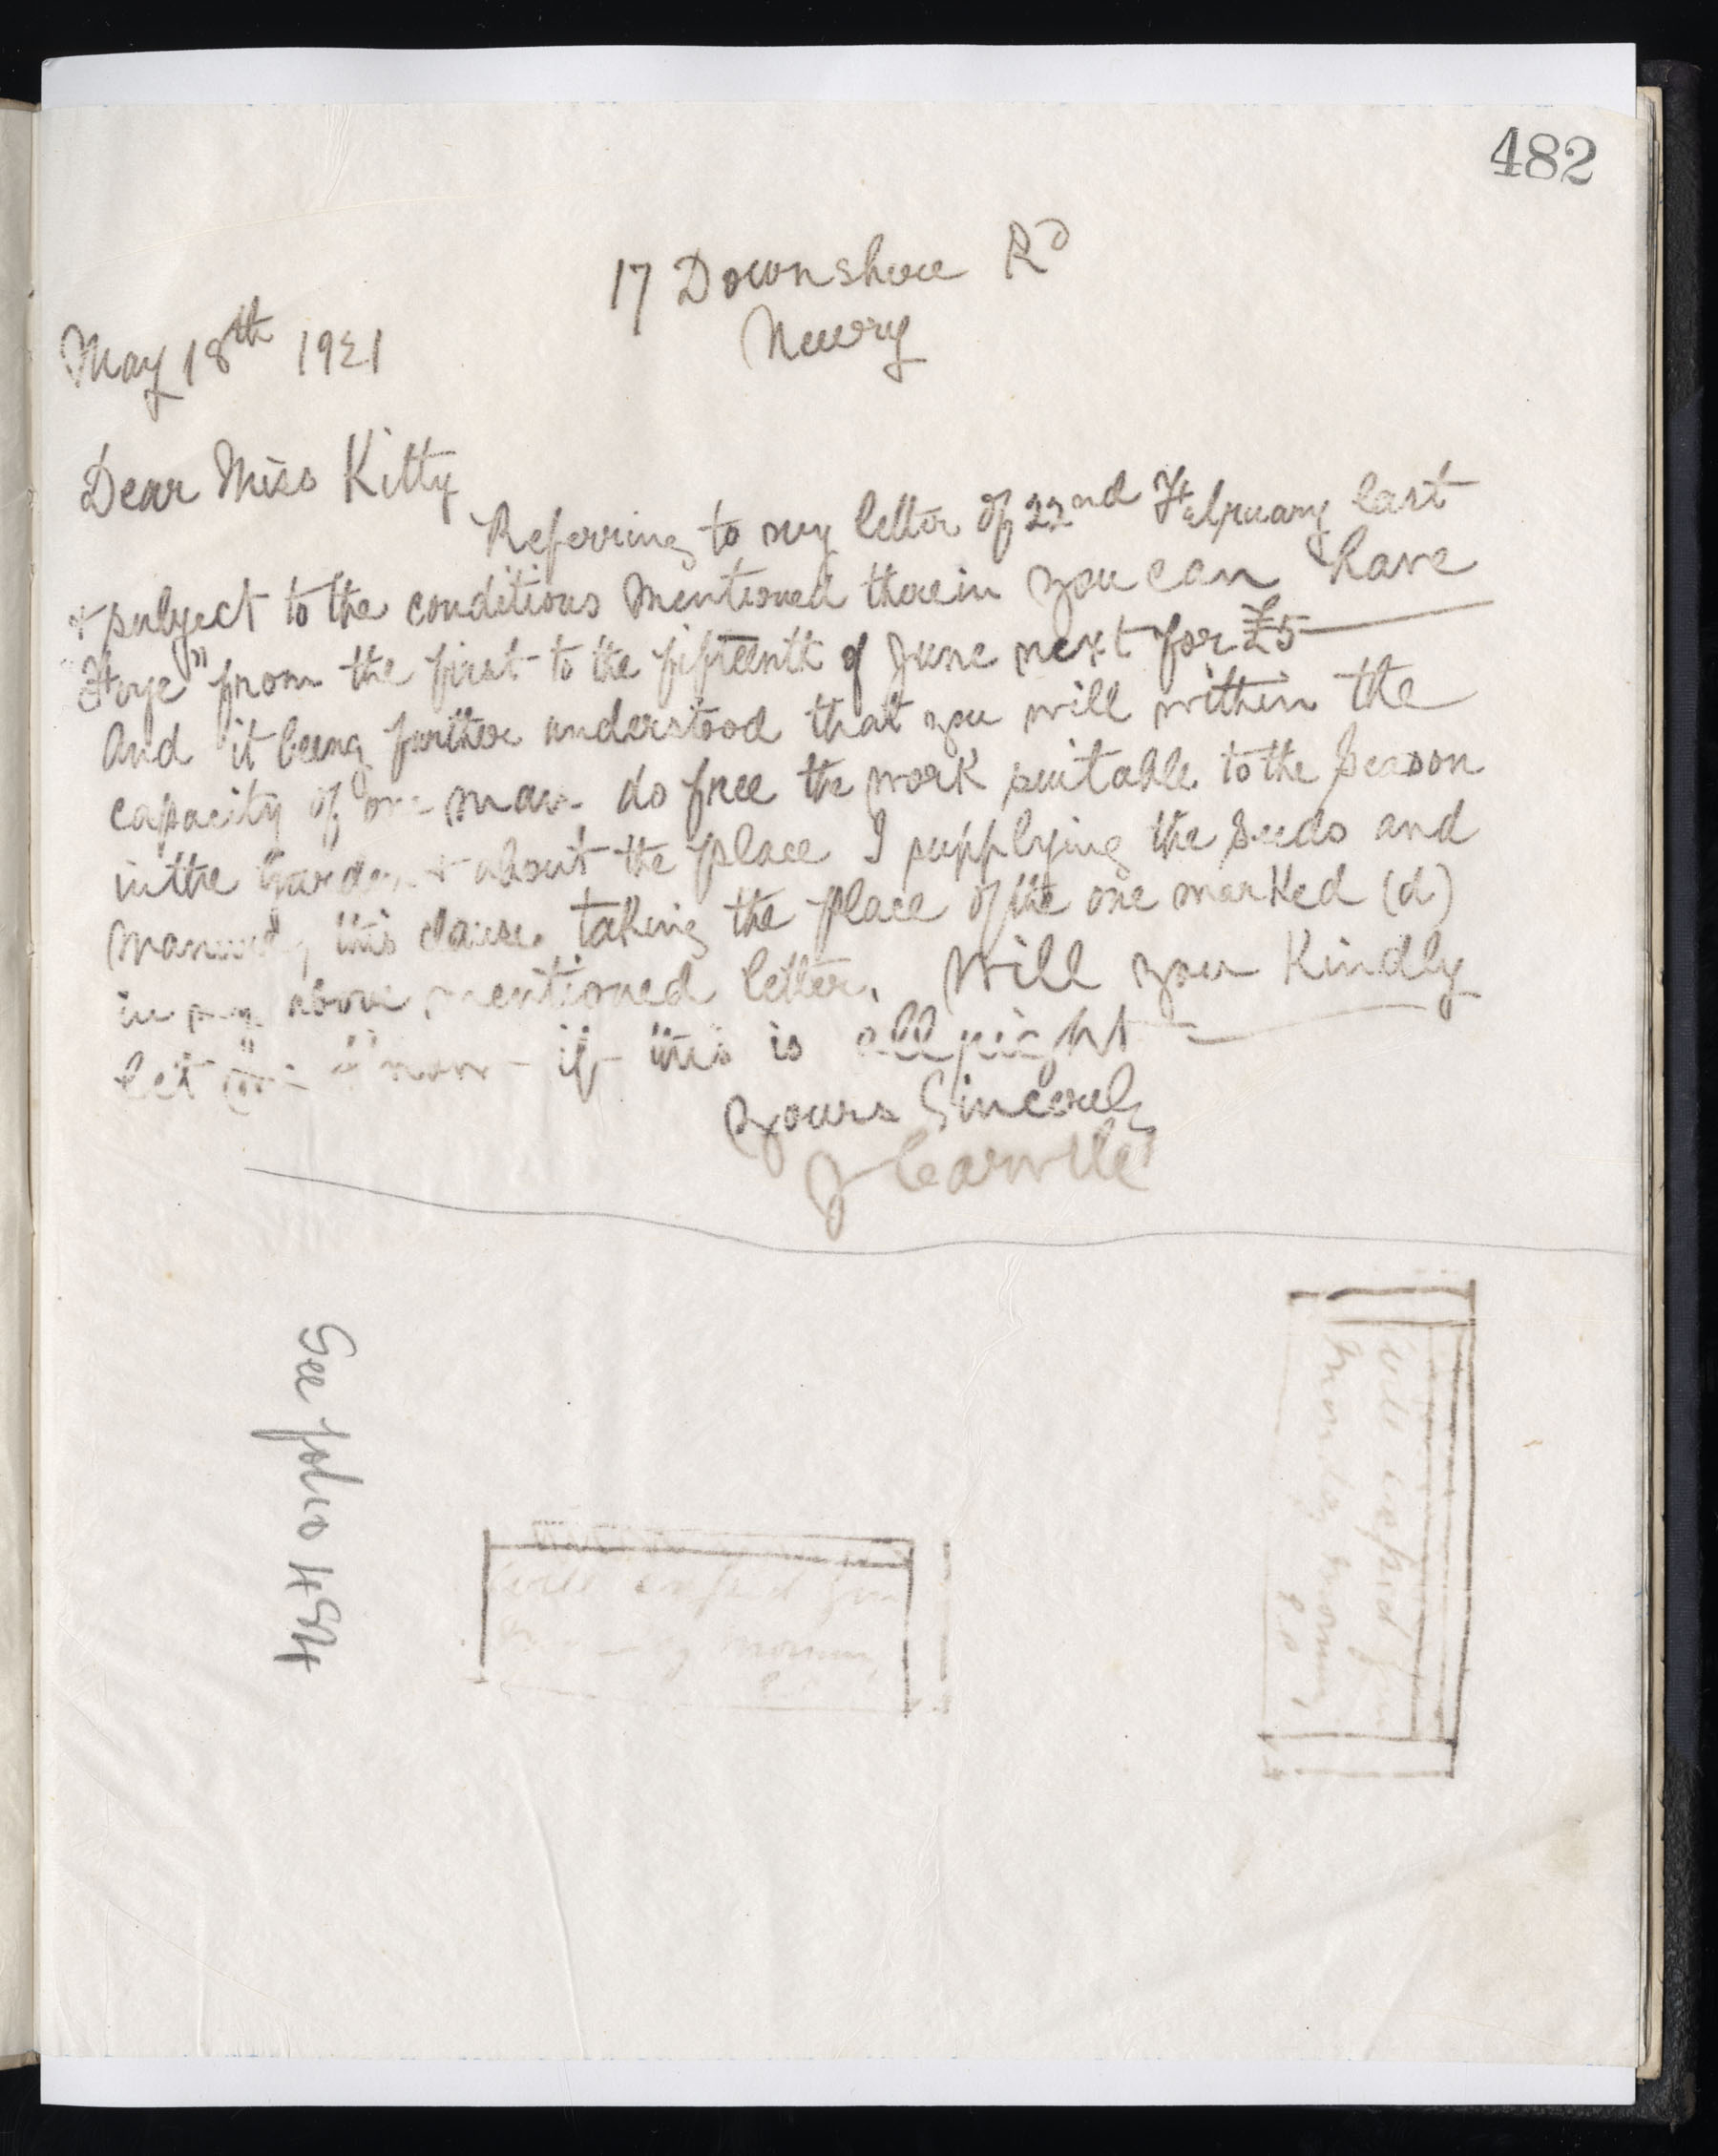 482
17 Downshire Rd
Newry
May 18th 1921
Dear Miss Kitty
Referring to my letter of 22nd February last
+ subject to the conditions mentioned therein you can have
from the first to the fifteenth of June next for £5
And it being further understood that you will within the
capacity of one man do free the work suitable to the season
in the Garden + about the place I supplying the seeds and
this clause taking the place of the one marked (d)
in my above mentioned letter. Will you Kindly
let me know if this is all right
Yours Sincerely
J Carvill
See folio 484
will